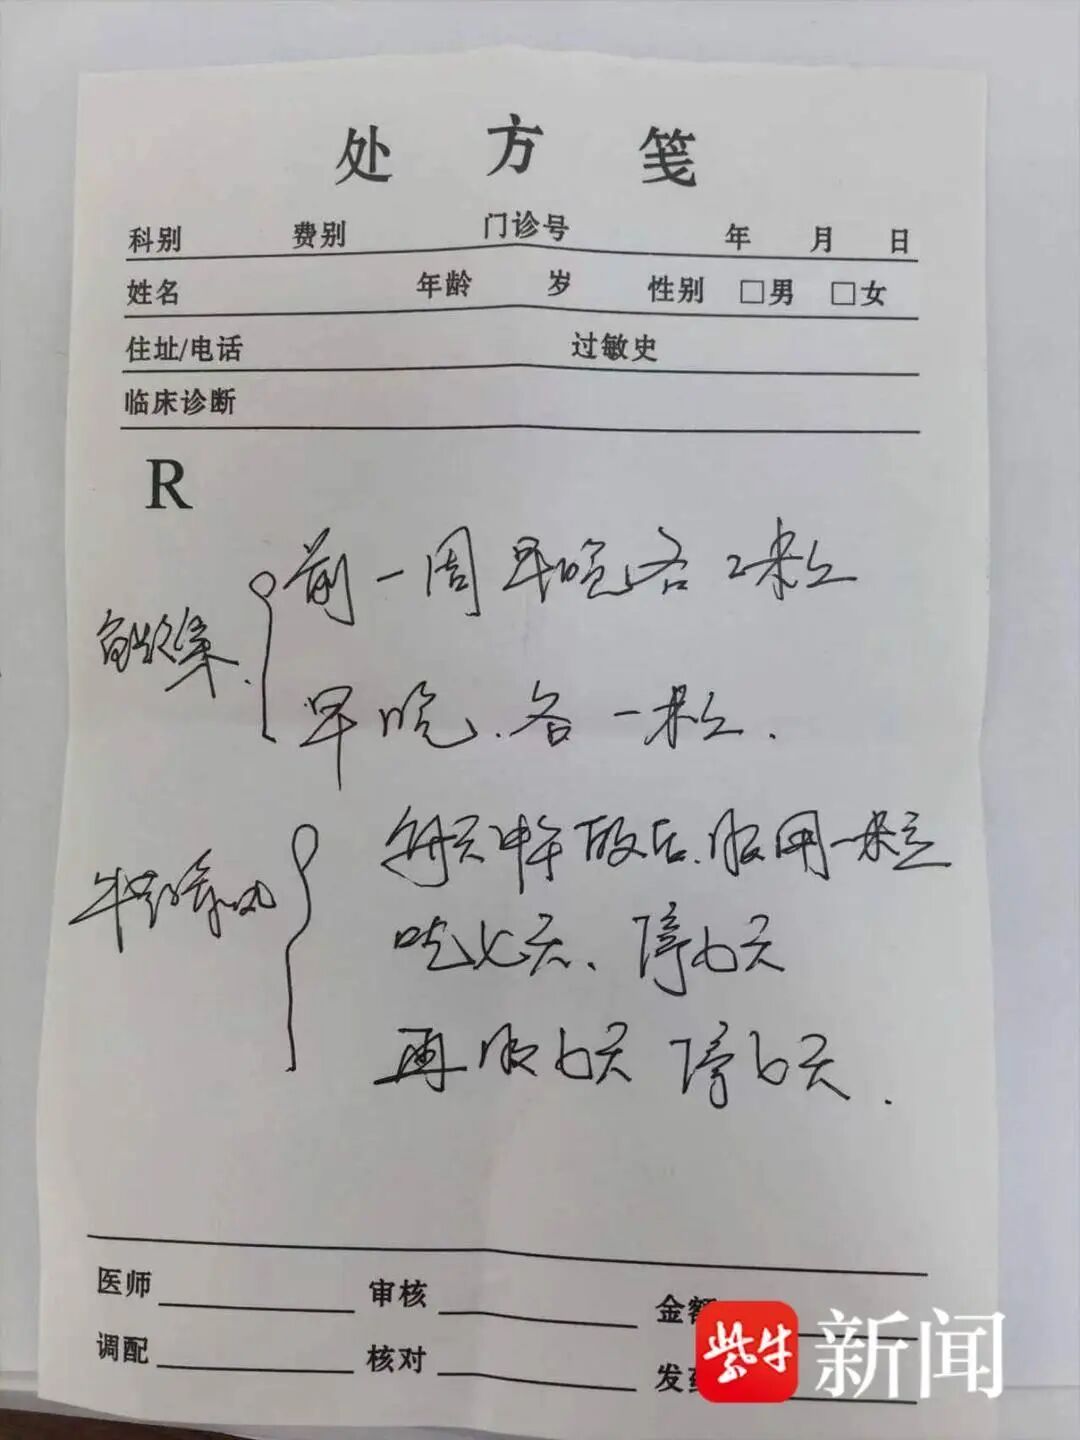 处方笺
科别 费别 门诊号 年 月 日
姓名 年龄 岁 性别 □男 □女
住址/电话 过敏史
临床诊断
R
前一周早晚各2粒
早晚、各一粒.
每天中午饭后、服用一粒
吃七天、停七天
再服七天 停七天.
医师 审核 金额
调配 核对 发药
紫牛新闻